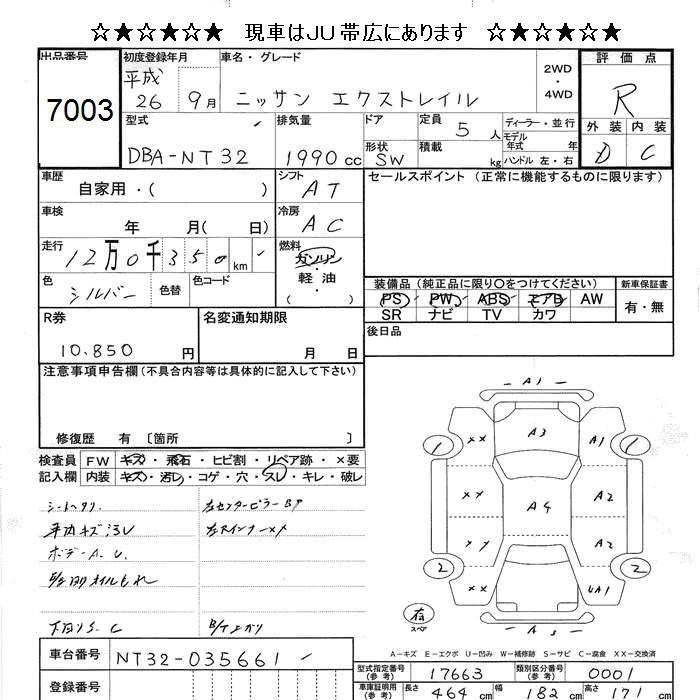 ☆★☆★☆★ 現車はJU帯広にあります ☆★☆★☆★
出品番号
7003
初度登録年月
平成
26 9月
車名・グレード
ニッサン エクストレイル
2WD
・
4WD
評価点
R
外装 内装
D C
型式
DBA-NT32
排気量
1990cc
ドア
形状
SW
定員
5人
積載
kg
ディーラー・並行
モデル
年式 年
ハンドル 左・右
車歴
自家用・( )
シフト
AT
セールスポイント (正常に機能するものに限ります)
車検
年 月( 日)
冷房
AC
走行
12万0千350km
燃料
ガソリン
・
軽油
( )
色
シルバー
色替
色コード
装備品 (純正品に限り○をつけてください)
PS PW ABS エアB AW
SR ナビ TV カワ
新車保証書
有・無
R券
10,850円
名変通知期限
月 日
後日品
注意事項申告欄 (不具合内容等は具体的に記入して下さい)
修復歴 有 〔箇所 〕
検査員
記入欄
FW キズ・飛石・ヒビ割・リペア跡・×要
内装 キズ・汚れ・コゲ・穴・スレ・キレ・破レ
ボデーA.U.
下回りS.C
A1
XX A3 A1
1 1
XX A4 A2
XX A2
2 2
XX UA1
有
スペア
A
A-キズ E-エクボ U-凹み W-補修跡 S-サビ C-腐食 XX-交換済
車台番号
NT32-035661
登録番号
型式指定番号
(参考)
17663
類別区分番号
(参考)
0001
車庫証明用
(参考)
長さ 464cm 幅 182cm 高さ 171cm